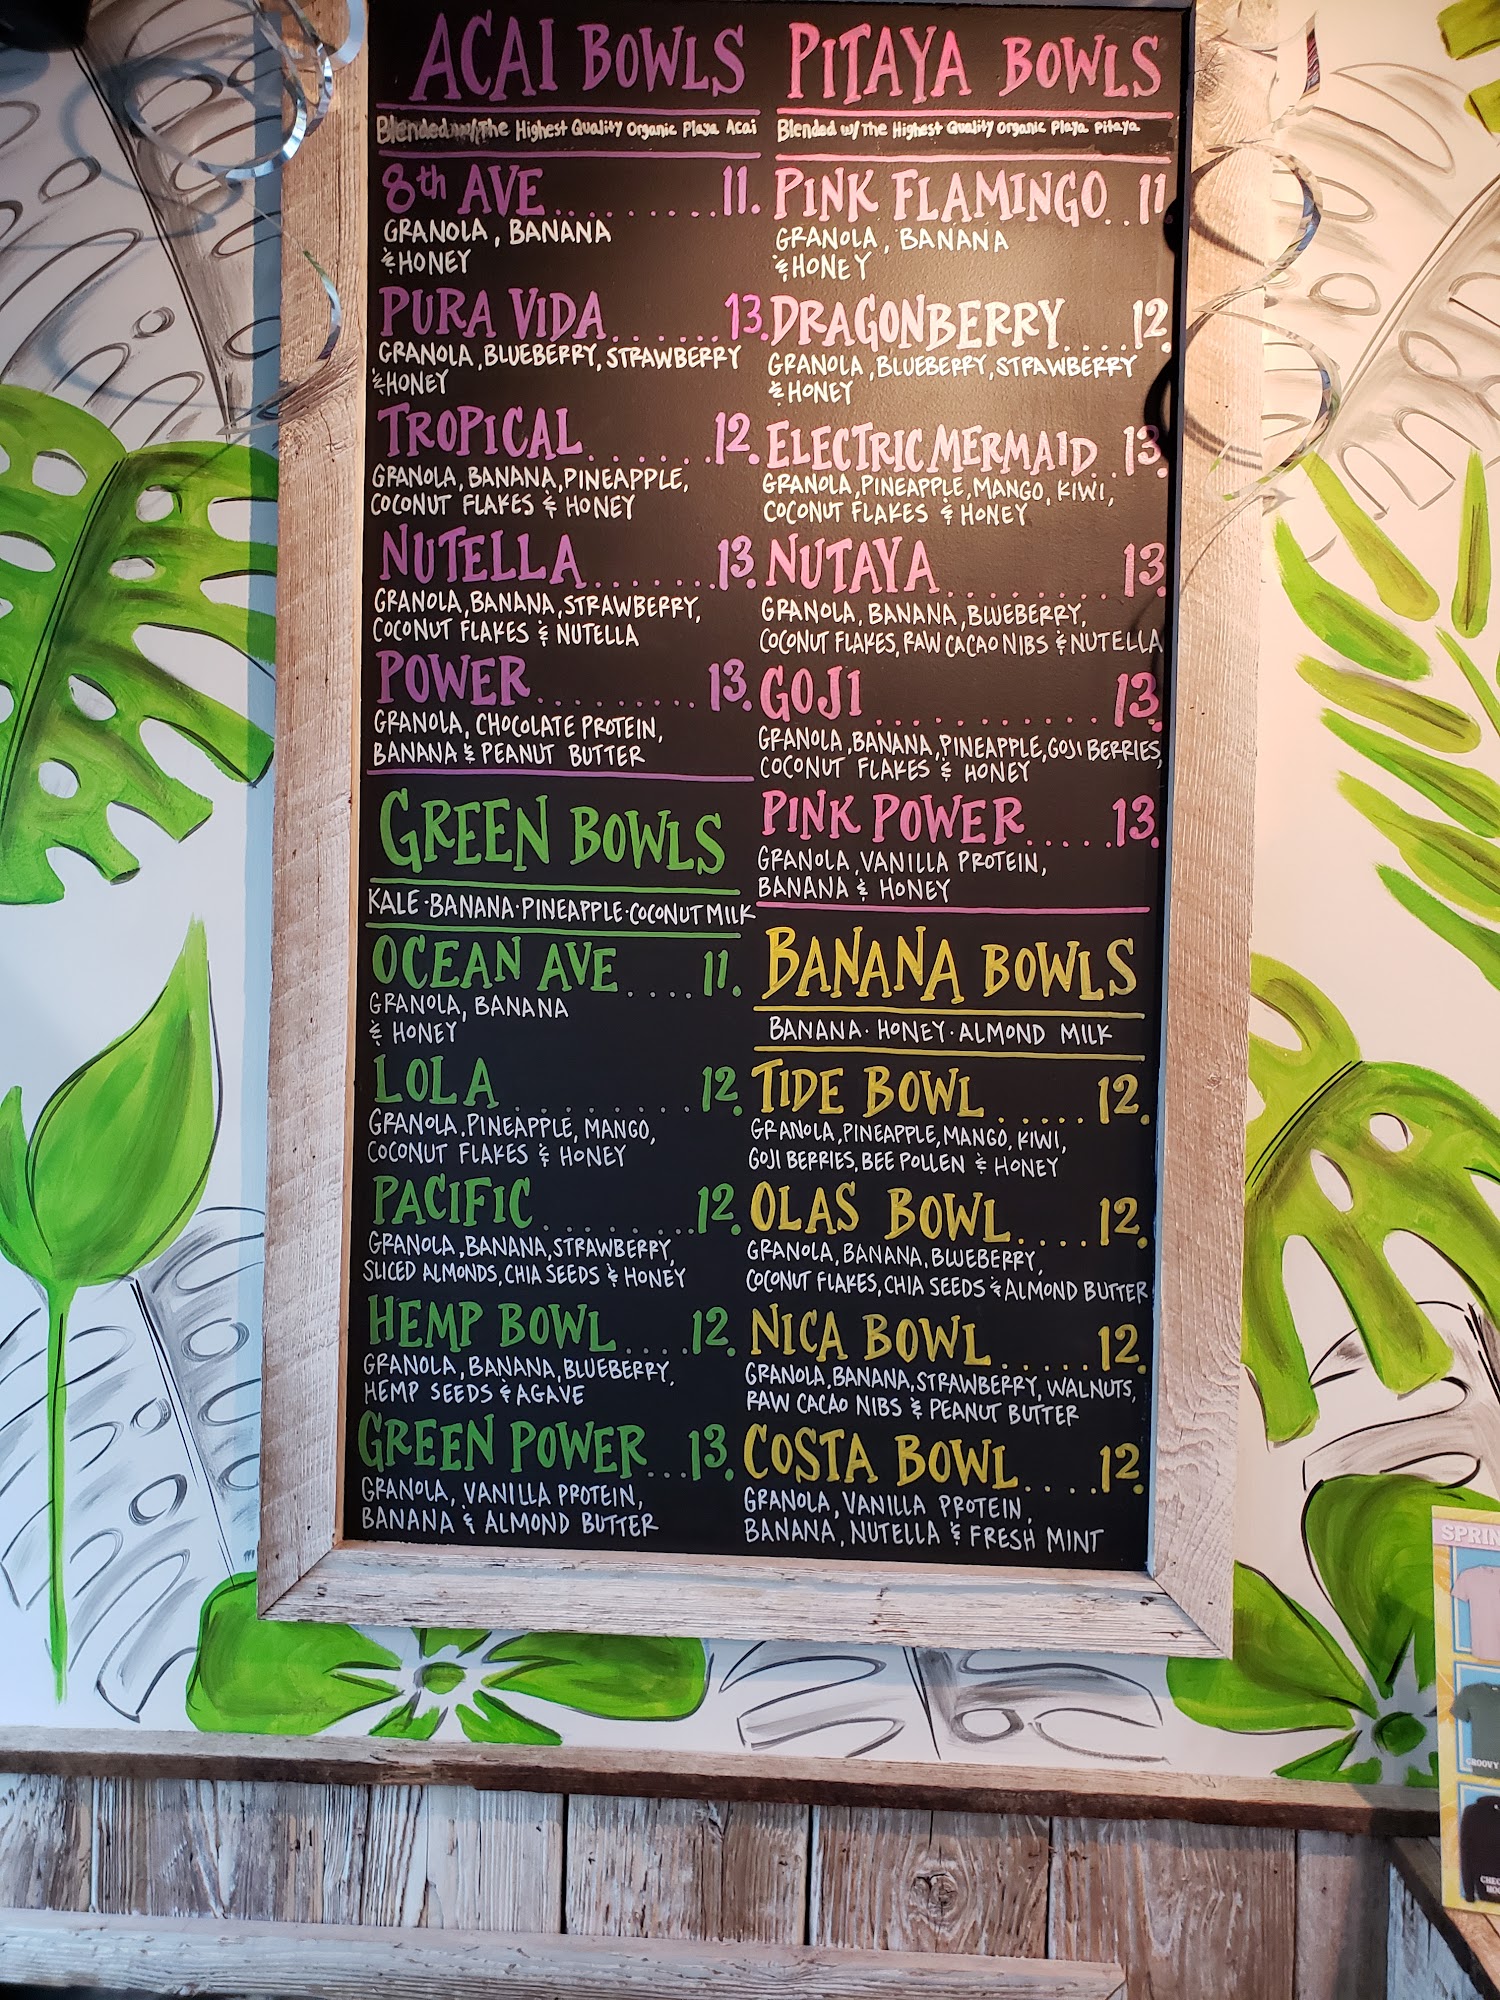 ACAI BOWLS
Blended w/The Highest Quality Organic Playa Acai
8th AVE.........11.
GRANOLA, BANANA
& HONEY
PURA VIDA......13.
GRANOLA, BLUEBERRY, STRAWBERRY
& HONEY
TROPICAL.......12.
GRANOLA, BANANA, PINEAPPLE,
COCONUT FLAKES & HONEY
NUTELLA.......13.
GRANOLA, BANANA, STRAWBERRY,
COCONUT FLAKES & NUTELLA
POWER.........13.
GRANOLA, CHOCOLATE PROTEIN,
BANANA & PEANUT BUTTER
GREEN BOWLS
KALE·BANANA·PINEAPPLE·COCONUT MILK
OCEAN AVE....11.
GRANOLA, BANANA
& HONEY
LOLA..........12.
GRANOLA, PINEAPPLE, MANGO,
COCONUT FLAKES & HONEY
PACIFIC........12.
GRANOLA, BANANA, STRAWBERRY,
SLICED ALMONDS, CHIA SEEDS & HONEY
HEMP BOWL....12.
GRANOLA, BANANA, BLUEBERRY,
HEMP SEEDS & AGAVE
GREEN POWER...13.
GRANOLA, VANILLA PROTEIN,
BANANA & ALMOND BUTTER
PITAYA BOWLS
Blended w/The Highest Quality Organic Playa Pitaya
PINK FLAMINGO..11.
GRANOLA, BANANA
& HONEY
DRAGONBERRY....12.
GRANOLA, BLUEBERRY, STRAWBERRY
& HONEY
ELECTRIC MERMAID..13.
GRANOLA, PINEAPPLE, MANGO, KIWI,
COCONUT FLAKES & HONEY
NUTAYA.........13.
GRANOLA, BANANA, BLUEBERRY,
COCONUT FLAKES, RAW CACAO NIBS & NUTELLA
GOJI............13.
GRANOLA, BANANA, PINEAPPLE, GOJI BERRIES,
COCONUT FLAKES & HONEY
PINK POWER.....13.
GRANOLA, VANILLA PROTEIN,
BANANA & HONEY
BANANA BOWLS
BANANA·HONEY·ALMOND MILK
TIDE BOWL.....12.
GRANOLA, PINEAPPLE, MANGO, KIWI,
GOJI BERRIES, BEE POLLEN & HONEY
OLAS BOWL....12.
GRANOLA, BANANA, BLUEBERRY,
COCONUT FLAKES, CHIA SEEDS & ALMOND BUTTER
NICA BOWL.....12.
GRANOLA, BANANA, STRAWBERRY, WALNUTS,
RAW CACAO NIBS & PEANUT BUTTER
COSTA BOWL....12.
GRANOLA, VANILLA PROTEIN,
BANANA, NUTELLA & FRESH MINT
GROOVY